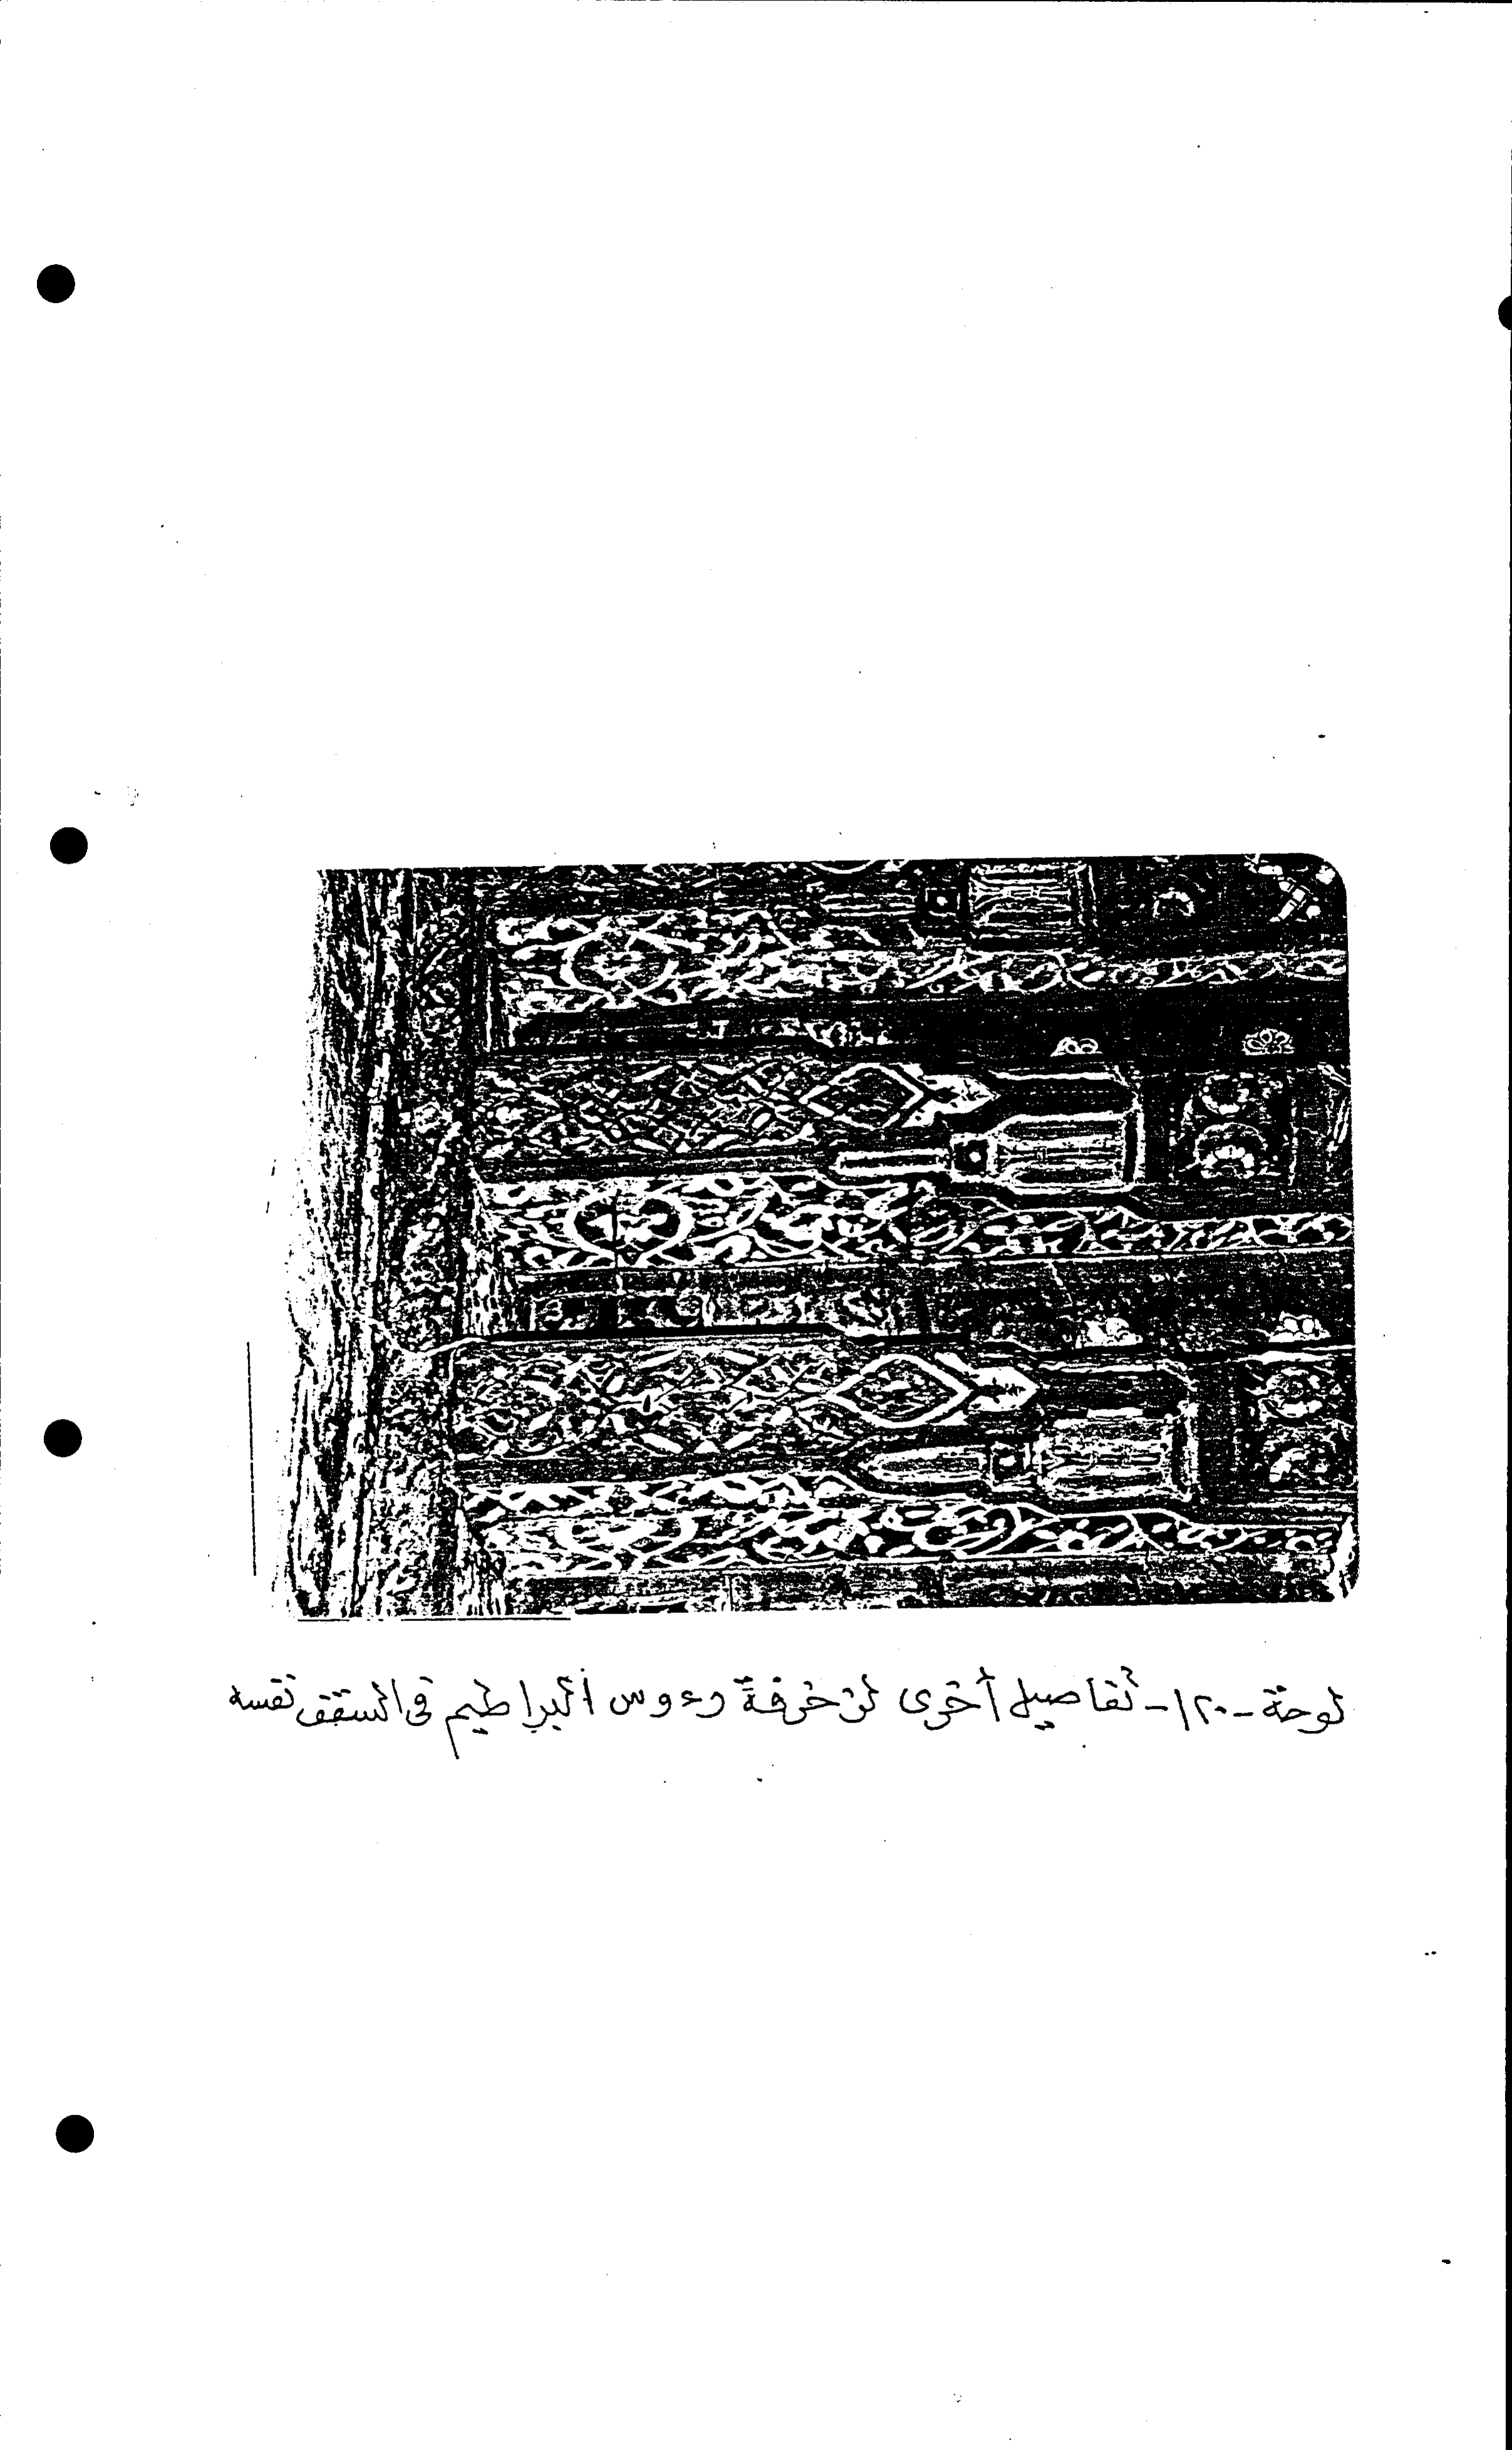 لوحة - ١٢٠ - تفاصيل أخرى لزخرفة رءوس البراطيم في السقف نفسه